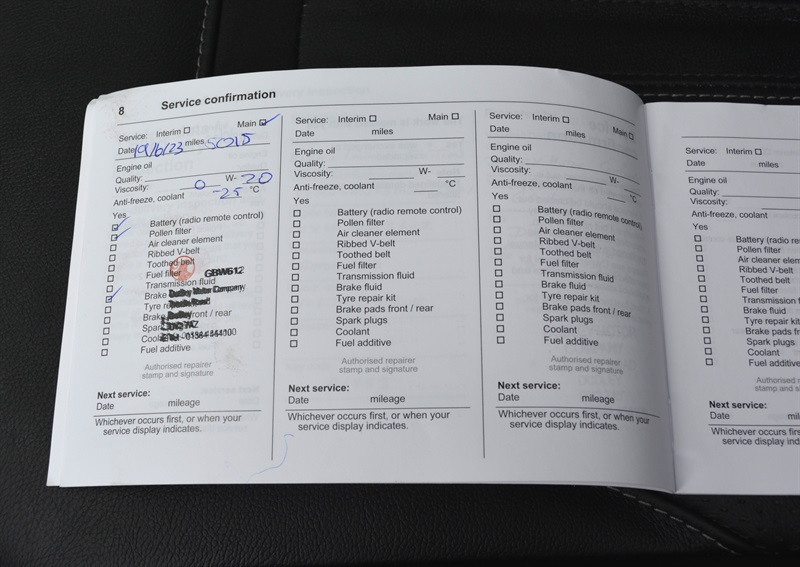 8 Service confirmation
Service: Interim ☐ Main ☑
Date 19/6/23 miles 50215
Engine oil
Quality:
Viscosity: 0 W- 20
Anti-freeze, coolant -25 °C
Yes
☑ Battery (radio remote control)
☑ Pollen filter
☐ Air cleaner element
☐ Ribbed V-belt
☐ Toothed belt
☐ Fuel filter
GBW612
☐ Transmission fluid
☑ Brake
☐ Tyre
☐ Brake front / rear
☐ Spark
☐
☐ Fuel additive
Authorised repairer
stamp and signature
Next service:
Date mileage
Whichever occurs first, or when your
service display indicates.
Service: Interim ☐ Main ☐
Date miles
Engine oil
Quality:
Viscosity: W-
Anti-freeze, coolant °C
Yes
☐ Battery (radio remote control)
☐ Pollen filter
☐ Air cleaner element
☐ Ribbed V-belt
☐ Toothed belt
☐ Fuel filter
☐ Transmission fluid
☐ Brake fluid
☐ Tyre repair kit
☐ Brake pads front / rear
☐ Spark plugs
☐ Coolant
☐ Fuel additive
Authorised repairer
stamp and signature
Next service:
Date mileage
Whichever occurs first, or when your
service display indicates.
Service: Interim ☐ Main ☐
Date miles
Engine oil
Quality:
Viscosity: W-
Anti-freeze, coolant °C
Yes
☐ Battery (radio remote control)
☐ Pollen filter
☐ Air cleaner element
☐ Ribbed V-belt
☐ Toothed belt
☐ Fuel filter
☐ Transmission fluid
☐ Brake fluid
☐ Tyre repair kit
☐ Brake pads front / rear
☐ Spark plugs
☐ Coolant
☐ Fuel additive
Authorised repairer
stamp and signature
Next service:
Date mileage
Whichever occurs first, or when your
service display indicates.
Service: Interim ☐
Date miles
Engine oil
Quality:
Viscosity:
Anti-freeze, coolant
Yes
☐ Battery (radio re
☐ Pollen filter
☐ Air cleaner elem
☐ Ribbed V-belt
☐ Toothed belt
☐ Fuel filter
☐ Transmission f
☐ Brake fluid
☐ Tyre repair kit
☐ Brake pads fr
☐ Spark plugs
☐ Coolant
☐ Fuel additive
Authorised r
stamp and s
Next service:
Date mil
Whichever occurs firs
service display ind